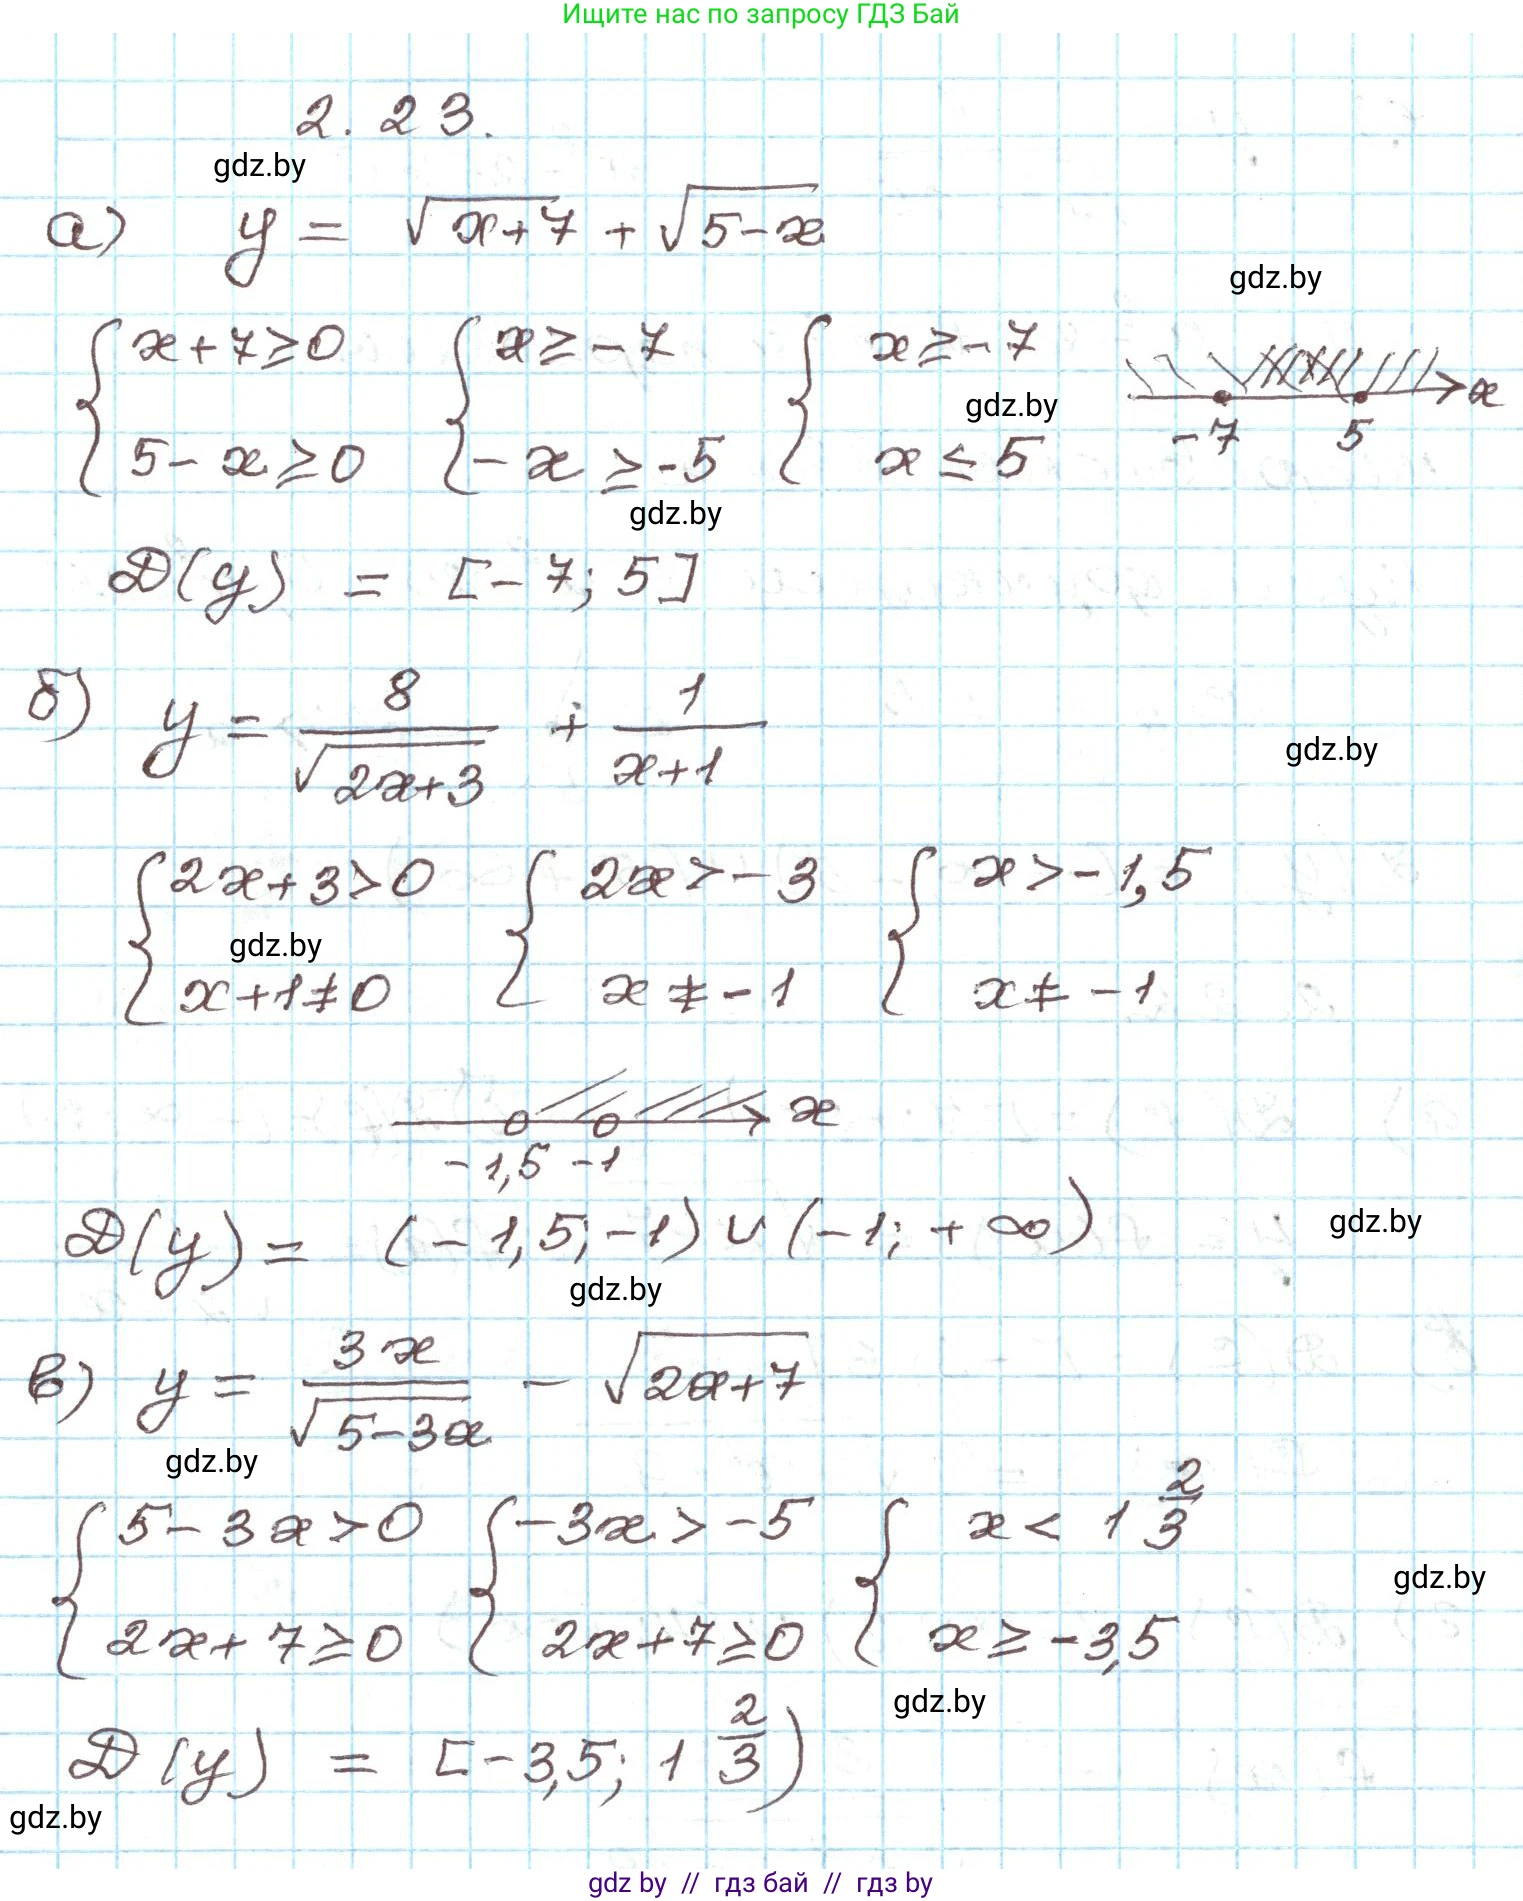 Ищите нас по запросу ГДЗ Бай
2. 23.
gdz.by
а) y = √x+7 + √5-x
gdz.by
{ x+7≥0 { x≥-7 { x≥-7
5-x≥0 -x≥-5 x≤5
gdz.by
-7 5 x
gdz.by
D(y) = [-7; 5]
б) y = 8/√2x+3 + 1/x+1
gdz.by
{ 2x+3>0 { 2x>-3 { x>-1,5
gdz.by
x+1≠0 x≠-1 x≠-1
x
-1,5 -1
D(y) = (-1,5; -1) ∪ (-1; +∞)
gdz.by
gdz.by
в) y = 3x/√5-3x - √2x+7
gdz.by
{ 5-3x>0 { -3x>-5 { x< 1 2/3
gdz.by
2x+7≥0 2x+7≥0 x≥-3,5
gdz.by
D(y) = [-3,5; 1 2/3)
gdz.by
gdz by // гдз бай // гдз by